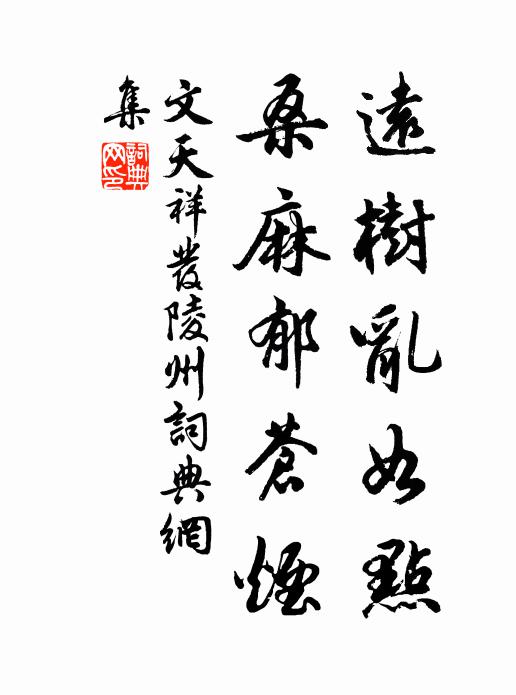 遠樹亂如點
桑麻郁蒼煙
文天祥發陵州詞典網
集
詞典
网印